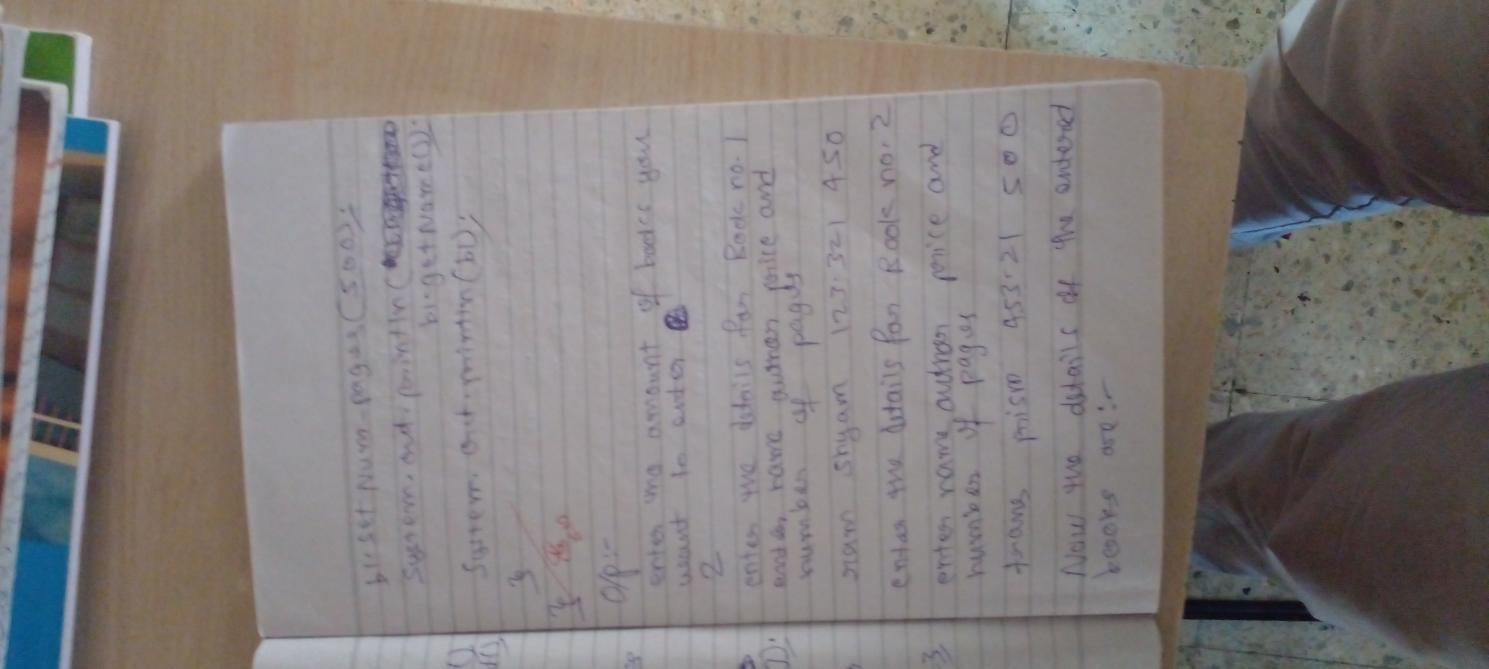 b1.setNum-pages(500);
System.out.println(
b1.getName());
System.out.println(b1);
}
}
O/p:-
enter the amount of books you
want to enter
2
enter the details for Book no. 1
enter name author price and
number of pages
ram shyam 123.321 450
enter the details for Book no. 2
enter name author price and
number of pages
trans prism 453.21 500
Now the details of the entered
books are:-